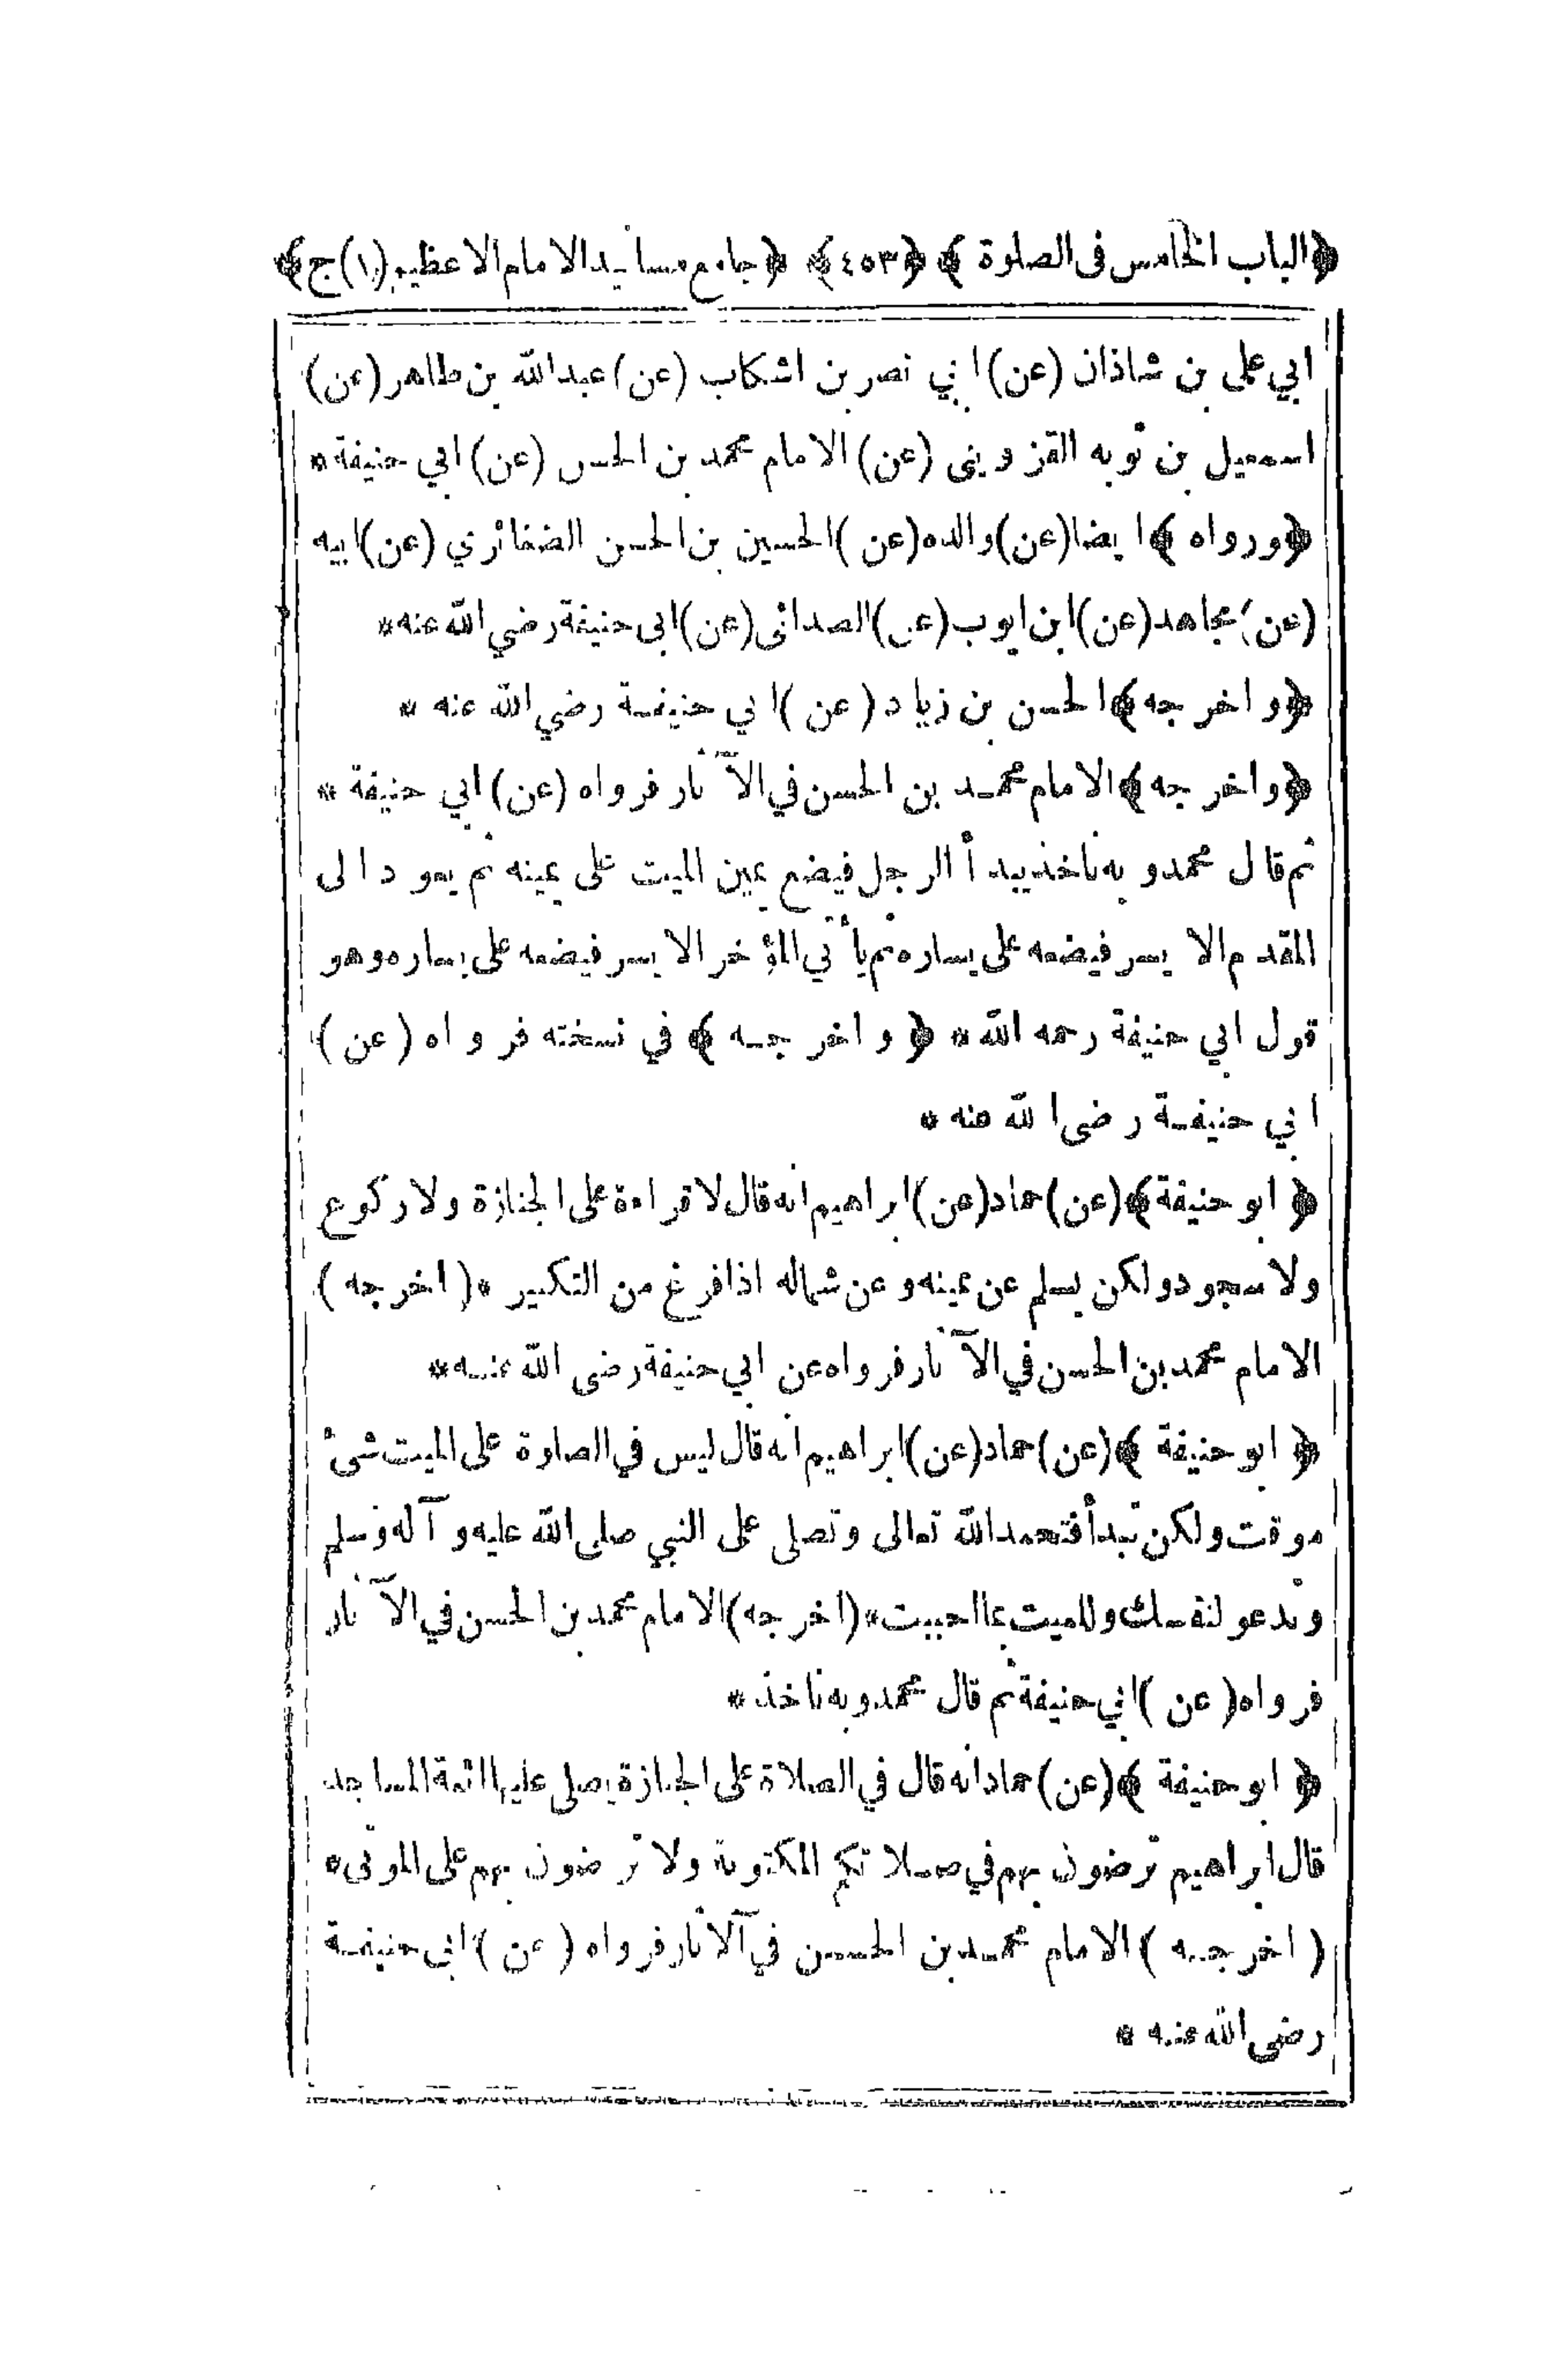 ﴿الباب الخامس فى الصلوة﴾ ﴿٤٥٣﴾ ﴿جامع مسانيد الامام الاعظم(١)ج﴾
ابي على بن شاذان (عن) ابي نصر بن اشكاب (عن) عبد الله بن طاهر (عن)
اسمعيل بن توبه القزوينى (عن) الامام محمد بن الحسن (عن) ابي حنيفة *
﴿ورواه﴾ ايضا (عن) والده (عن) الحسين بن الحسن الغضائري (عن) ابيه
(عن) مجاهد (عن) ابن ايوب (عن) الصدائى (عن) ابى حنيفة رضي الله عنه *
﴿واخرجه﴾ الحسن بن زياد (عن) ابي حنيفة رضي الله عنه *
﴿واخرجه﴾ الامام محمد بن الحسن في الآثار فرواه (عن) ابي حنيفة *
ثم قال محمد وبه ناخذ يبدأ الرجل فيضع يمين الميت على يمينه ثم يعود الى
المقدم الايسر فيضعه على يساره ثم يأتي المؤخر الايسر فيضعه على يساره وهو
قول ابي حنيفة رحمه الله * ﴿واخرجه﴾ في نسخته فرواه (عن)
ابي حنيفة رضى الله عنه *
﴿ابو حنيفة﴾ (عن) حماد (عن) ابراهيم انه قال لا قراءة على الجنازة ولا ركوع
ولا سجود ولكن يسلم عن يمينه وعن شماله اذا فرغ من التكبير * (اخرجه)
الامام محمد بن الحسن في الآثار فرواه عن ابي حنيفة رضى الله عنه *
﴿ابو حنيفة﴾ (عن) حماد (عن) ابراهيم انه قال ليس في الصلوة على الميت شئ
موقت ولكن تبدأ فتحمد الله تعالى وتصلى على النبي صلى الله عليه وآله وسلم
وتدعو لنفسك وللميت بما احببت * (اخرجه) الامام محمد بن الحسن في الآثار
فرواه (عن) ابي حنيفة ثم قال محمد وبه ناخذ *
﴿ابو حنيفة﴾ (عن) حماد انه قال في الصلاة على الجنازة يصلى عليها ائمة المساجد
قال ابراهيم ترضون بهم في صلاتكم المكتوبة ولا ترضون بهم على الموتى *
(اخرجه) الامام محمد بن الحسن في الآثار فرواه (عن) ابى حنيفة
رضى الله عنه *